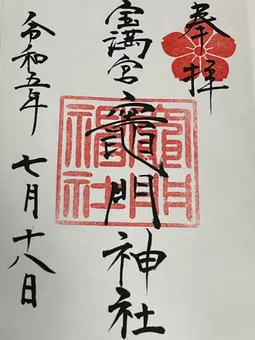 奉拝
宝満宮
竈門神社
令和五年
七月十八日
竈門
神社